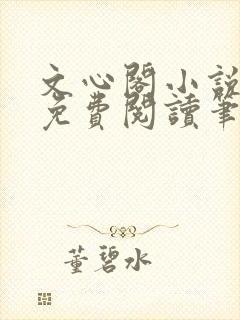 文心閣小說
免費閱讀筆
董碧水